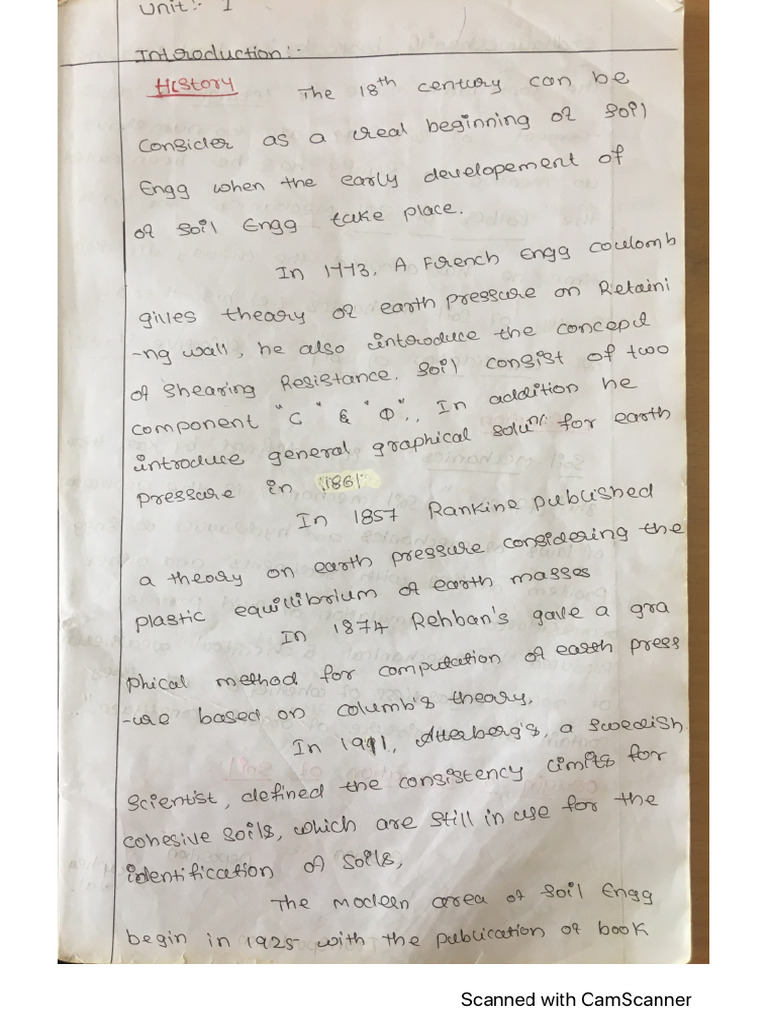 Unit:- I
Introduction:-
History The 18th century can be
Consider as a real beginning of Soil
Engg when the early developement of
of Soil Engg take place.
In 1773, A French Engg Coulomb
gives theory of earth pressure on Retaini
-ng wall, he also introduce the concept
of shearing Resistance. Soil consist of two
component "C" & "Φ". In addition he
introduce general graphical solun: for earth
pressure in 1861
In 1857 Rankine published
a theory on earth pressure considering the
plastic equillibrium of earth masses
In 1874 Rehban's gave a gra
phical method for computation of earth press
-ure based on columb's theory.
In 1911, Atterberg's, a swedish
Scientist, defined the consistency limits for
cohesive soils, which are still in use for the
identification of soils,
The modeen area of soil Engg
begin in 1925 with the publication of book
Scanned with CamScanner